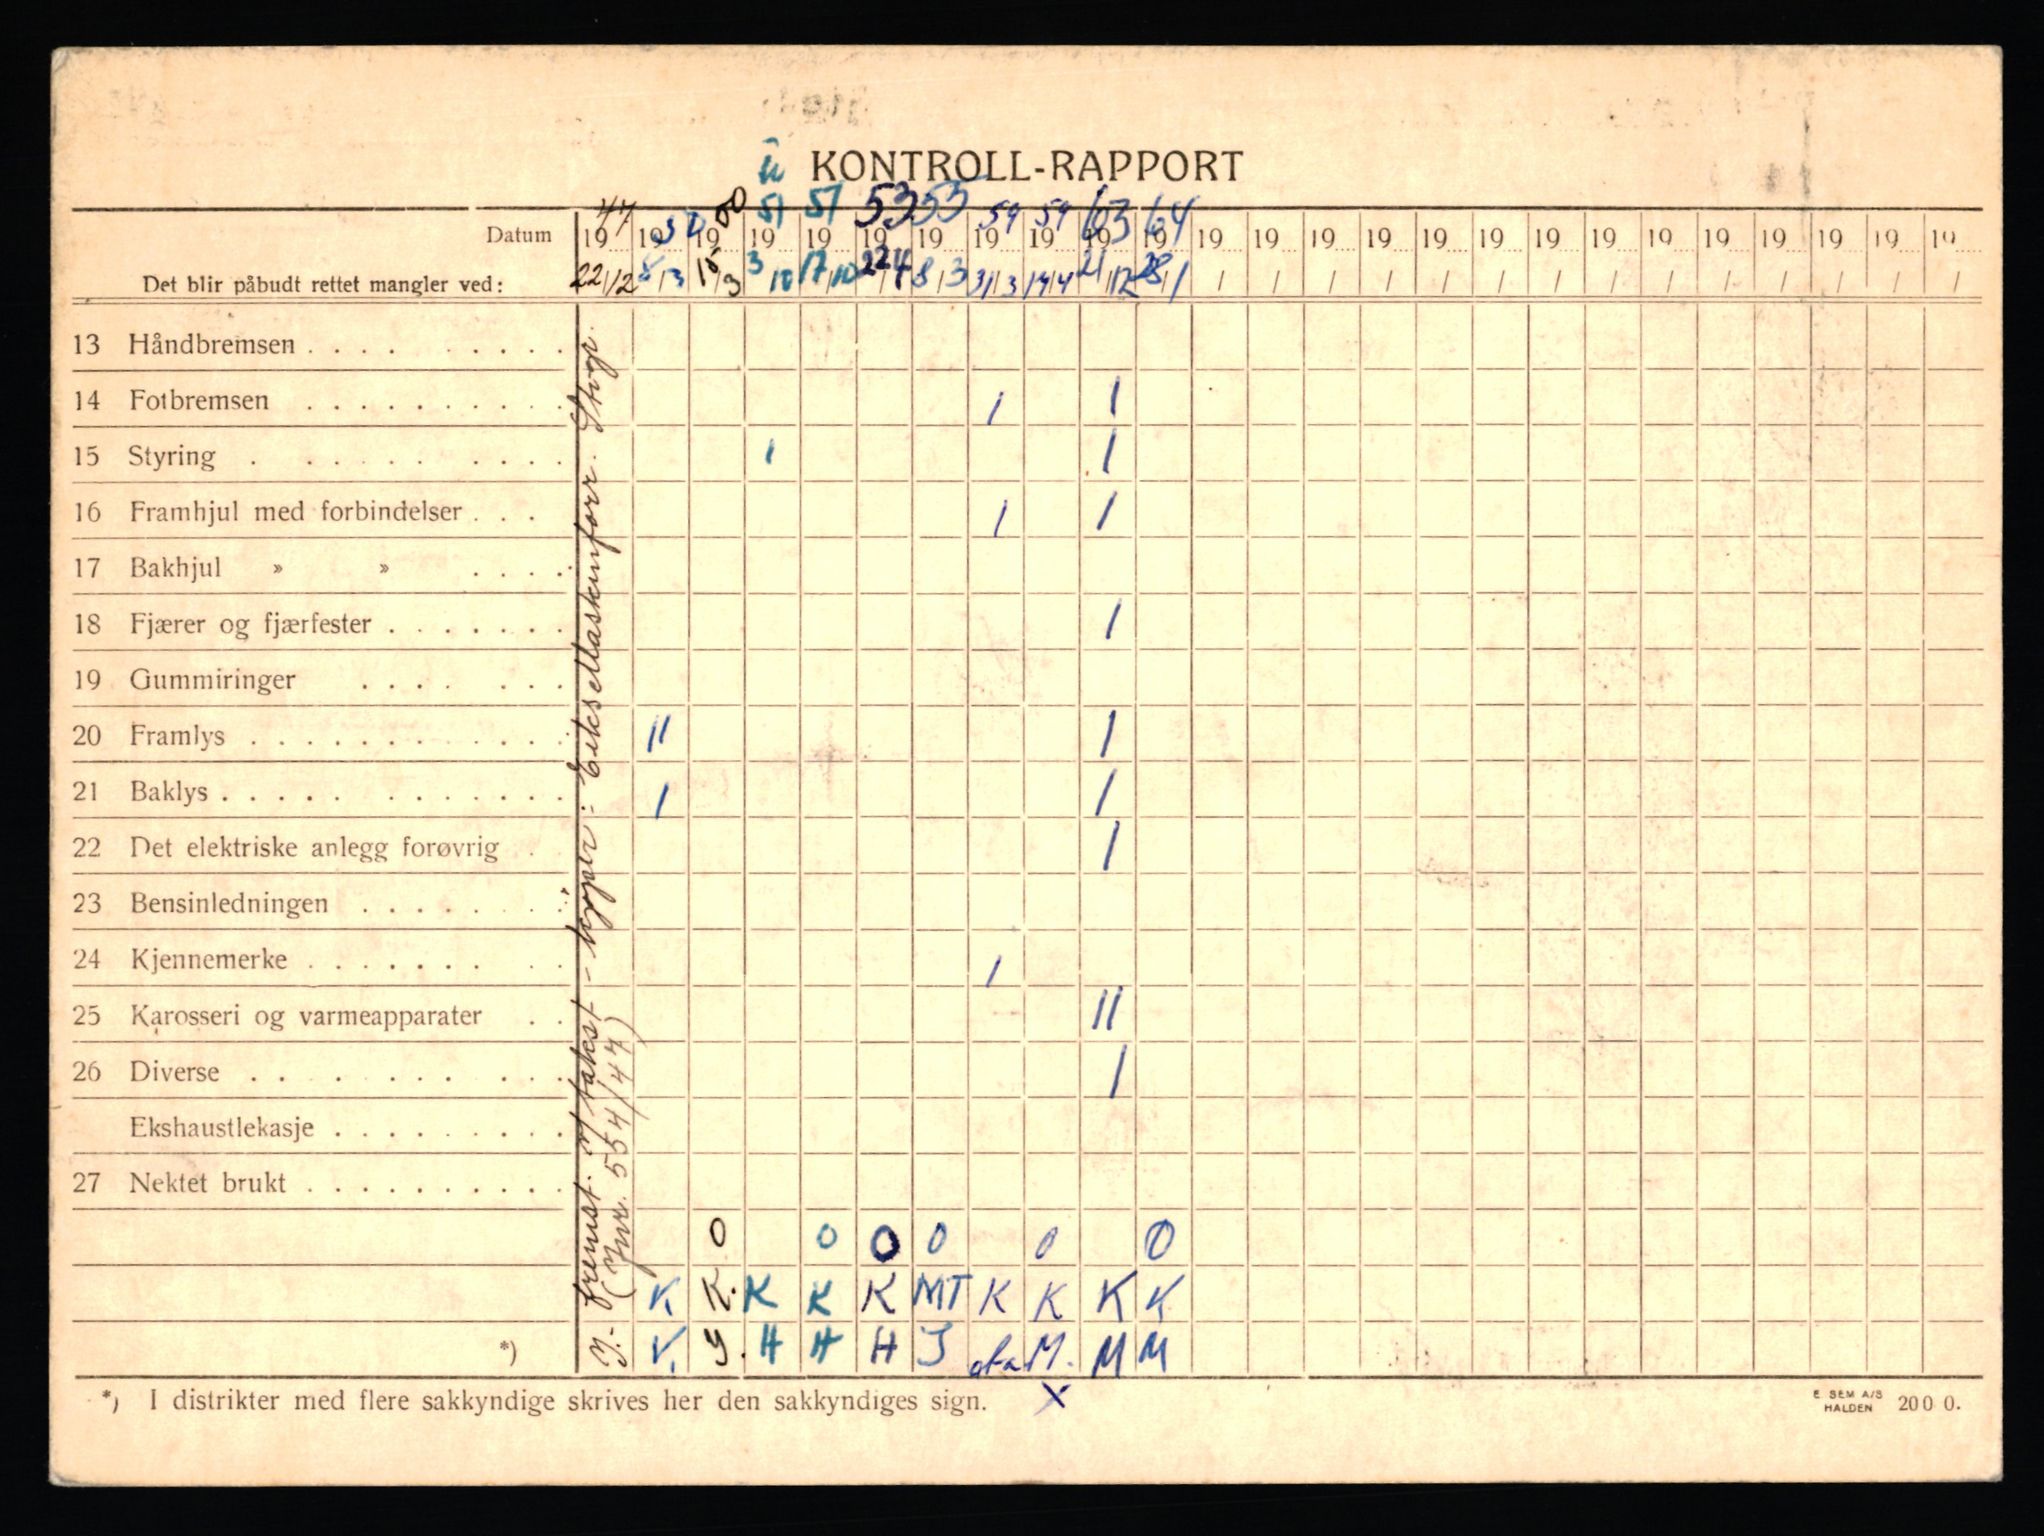 KONTROLL-RAPPORT
47 50 50 51 51 53 55 59 59 63 64
Datum 19 19 19 19 19 19 19 19 19 19 19 19 19 19 19 19 19 19 19 19 19 19 19 19 19
Det blir påbudt rettet mangler ved: 22/12 8/3 15/3 3/10 17/10 22/4 8/3 31/3 14/4 21/12 28/1 / / / / / / / / / / / / / /
13 Håndbremsen . . . . . . . . .
14 Fotbremsen . . . . . . . . . . 1 1
15 Styring . . . . . . . . . 1 1
16 Framhjul med forbindelser . . . 1 1
17 Bakhjul » » . . . .
18 Fjærer og fjærfester . . . . . . . 1
19 Gummiringer . . . . . . .
20 Framlys . . . . . . . . . . . . 11 1
21 Baklys . . . . . . . . . . . . 1 1
22 Det elektriske anlegg forøvrig . 1
23 Bensinledningen . . . . . . .
24 Kjennemerke . . . . . . . . . 1
25 Karosseri og varmeapparater . . 11
26 Diverse . . . . . . . . . . 1
Ekshaustlekasje . . . . . . . . .
27 Nektet brukt . . . . . . . . . .
0 0 0 0 0 0
K K. K K K MT K K K K
*) V. H H H M. M M
fremst.
(Jnr. 554/47)
*) I distrikter med flere sakkyndige skrives her den sakkyndiges sign. X
E SEM A/S
HALDEN 200 0.